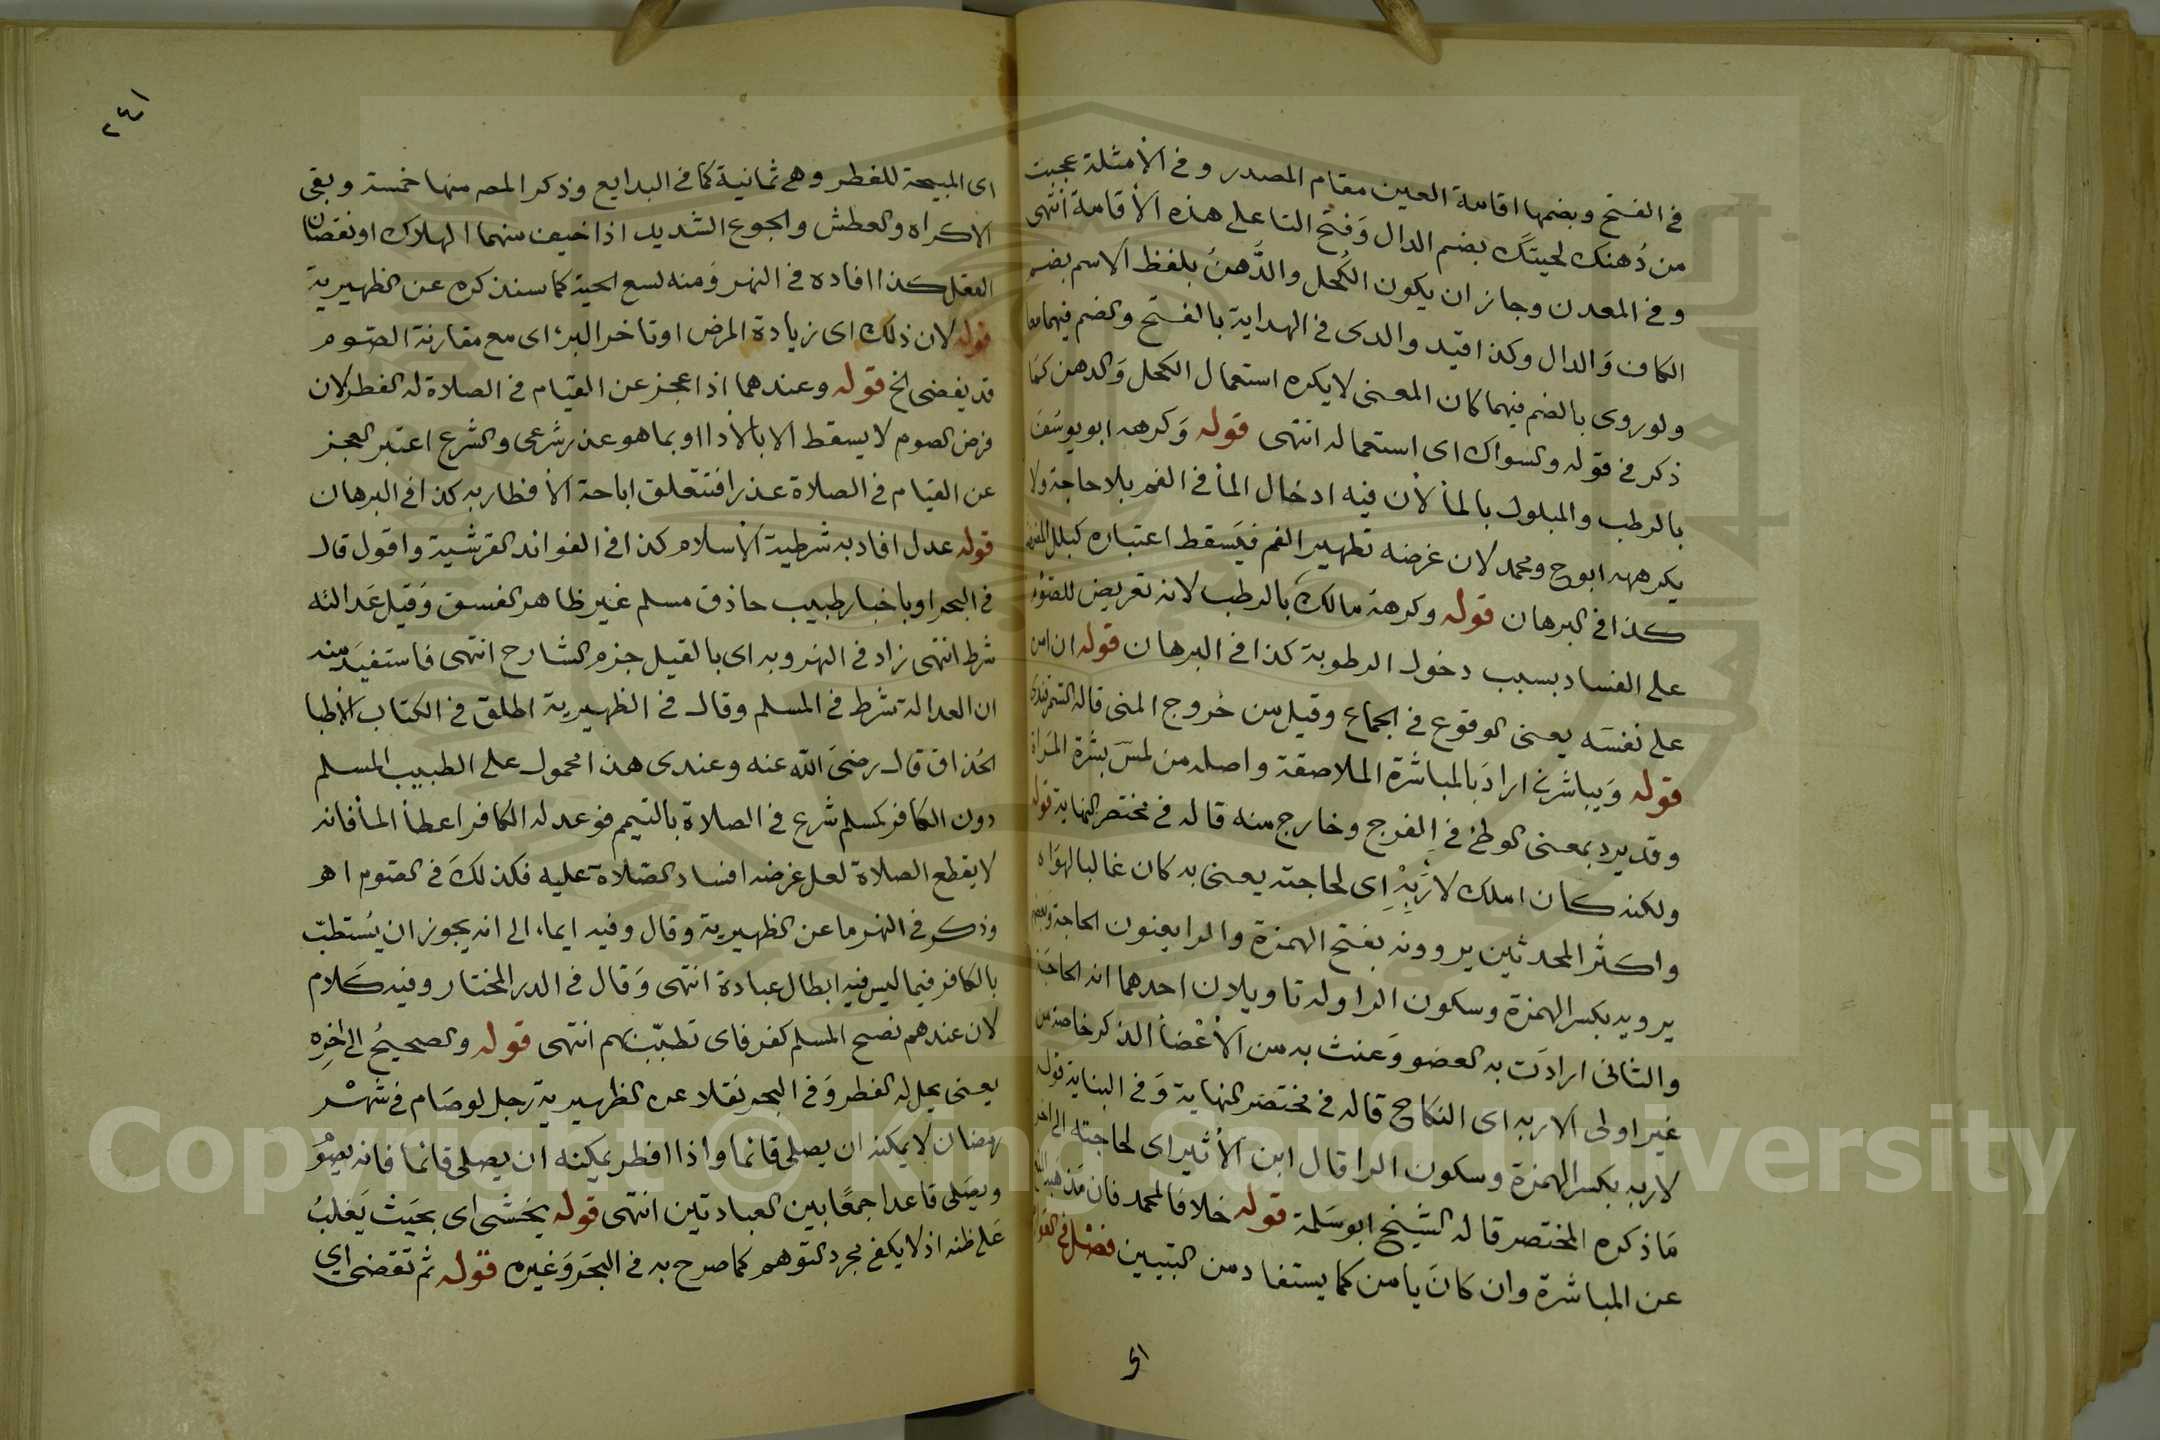 في الفتح وبضمها اقامة العين مقام المصدر وفي الأمثلة عجبت
من دُهنك لحيتَك بضم الدال وَفتح التا على هذه الأقامة انتهى
وفي المعدن وجاز ان يكون الكُحل والدُّهنُ بلفظ الاسم بضم
الكاف وَالدال وكذا قيد والدى في الهداية بالفتح والضم فيهما معا
ولو روى بالضم فيهما كان المعنى لا يكره استعمال الكحل وَالدهن كمَا
ذكر في قوله والسواك اى استعماله انتهى قوله وَكرهه ابويوسُفَ
بالرطب والمبلول بالمأ لأن فيه ادخال المأ في الفم بلا حاجة ولا
يكرهه ابوح ومحمد لان غرضه تطهير الفم فيَسقط اعتباره كبلل
كذا في البرهان قوله وكرههُ مالكُ بالرطب لانه تعريض للصَّوْم
على الفساد بسبب دخول الرطوبة كذا في البرهان قوله ان امن
على نفسَه يعنى الوقوع في الجماع وقيل من خُروج المنى قاله
قوله وَيباشرنى ارادَ بالمباشرة الملاصقة واصله من لمسَ بشرة المرأة
وقد يرد بمعنى الوطئ في الفرج وخارج منه قاله في مختصر النهاية قوله
ولكنه كان املك لاَرَبِهْ اى لحاجته يعنى به كان غالبا لهوَاه
واكثر المحدثين يروونه بفتح الهمزة والرا يعنون الحاجة وبعضهم
يرويه بكسر الهمزة وسكون الرا وله تاويلان احدهما انه الحاجَة
والثانى ارادَت به العضو وَعنت به من الأعْضأ الذكر خاصة من
غير اولى الاربه اى النكاح قاله في مختصر النهاية وَفي البناية قوله
لاربه بكسر الهمزة وسكون الرا قال ابن الأثير اى لحاجته الى اخر
مَا ذكره المختصر قاله الشيخ ابوسَلمة قوله خلافا لمحمد فان مَذهبه
عن المباشرة وان كَانَ يامن كما يستفاد من التبيين فصْل في
اى
٢٤١
اى المبيحة للفطر وهى ثمانية كما في البدايع وذكر المصه منها خمسة وبقى
الاكراه والعطش والجوع الشديد اذا خيف منهما الهلاك او نقصان
العقل كذا افاده في النهر وَمنه لسع الحية كما سنذكره عن الظهيرية
قوله لان ذلك اى زيادة المرض او تاخر البرء اى مع مقارنة الصّوم
قد يفضى الخ قوله وعندهما اذا عجز عن القيام في الصلاة له الفطر لان
فرض الصوم لا يسقط الا بالأدا او بما هو عذر شرعى والشرع اعتبر العجز
عن القيام في الصلاة عذرا فتتعَلق اباحة الأفطار به كذا في البرهان
قوله عدل افاد به شرطية الأسلام كذا في الفوائد القرشية واقول قال
في البحر او باخبار طبيب حاذق مسلم غير ظاهر الفسق وَقيل عَدالته
شرط انتهى زاد في النهر وبه اى بالقيل جزم الشارح انتهى فاستفيدَ منه
ان العدالة شرط في المسلم وقال في الظهيرية اطلق في الكتاب الاطبا
الحُذاق قال رضىَ الله عنه وعندى هذا محمول على الطبيب المسلم
دون الكافر كمسلم شرع في الصلاة بالتيمم فوعد له الكافر اعطأ المأ فانه
لا يقطع الصلاة لعل غرضه افساد الصّلاة عليه فكذلكَ في الصّوم اهر
وذكر في النهر ما عن الظهيرية وقال وفيه ايماء الى انه يجوز ان يُستطبّ
بالكافر فيما ليس فيه ابطال عبادة انتهى وَقال في الدر المختار وفيه كَلام
لان عندهم نصح المسلم كفر فاى تطبّب بهم انتهى قوله والصحيحُ الى اخِرِه
يعنى يحل له الفطر وَفي البحر نقلا عن الظهيرية رجل لو صَام في شهْر
رمضان لا يمكنه ان يصلى قائما واذا افطر يمكنه ان يصلى قائما فانه يصُوْم
ويصَلى قاعدا جمعًا بين العبادتين انتهى قوله يخشى اى بحيَث يَغلبُ
عَلى ظنه اذ لا يكفى مجرد التوهم كما صرح به في البحَر وَغيره قوله ثم تقضى اى
Copyright © King Saud University